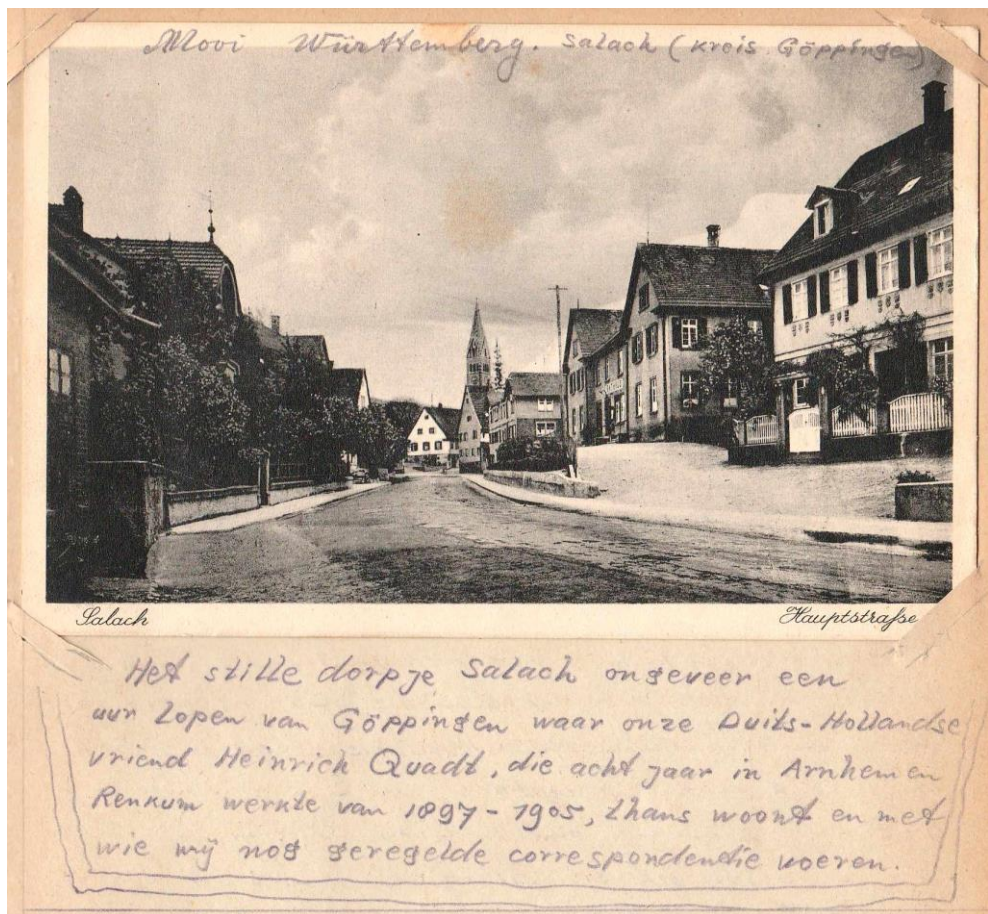 Mooi Württemberg. Salach (Kreis Göppingen)
Salach
Hauptstraße
Het stille dorpje Salach ongeveer een
uur lopen van Göppingen waar onze Duits-Hollandse
vriend Heinrich Quadt, die acht jaar in Arnhem en
Renkum werkte van 1897-1905, thans woont en met
wie wij nog geregelde correspondentie voeren.